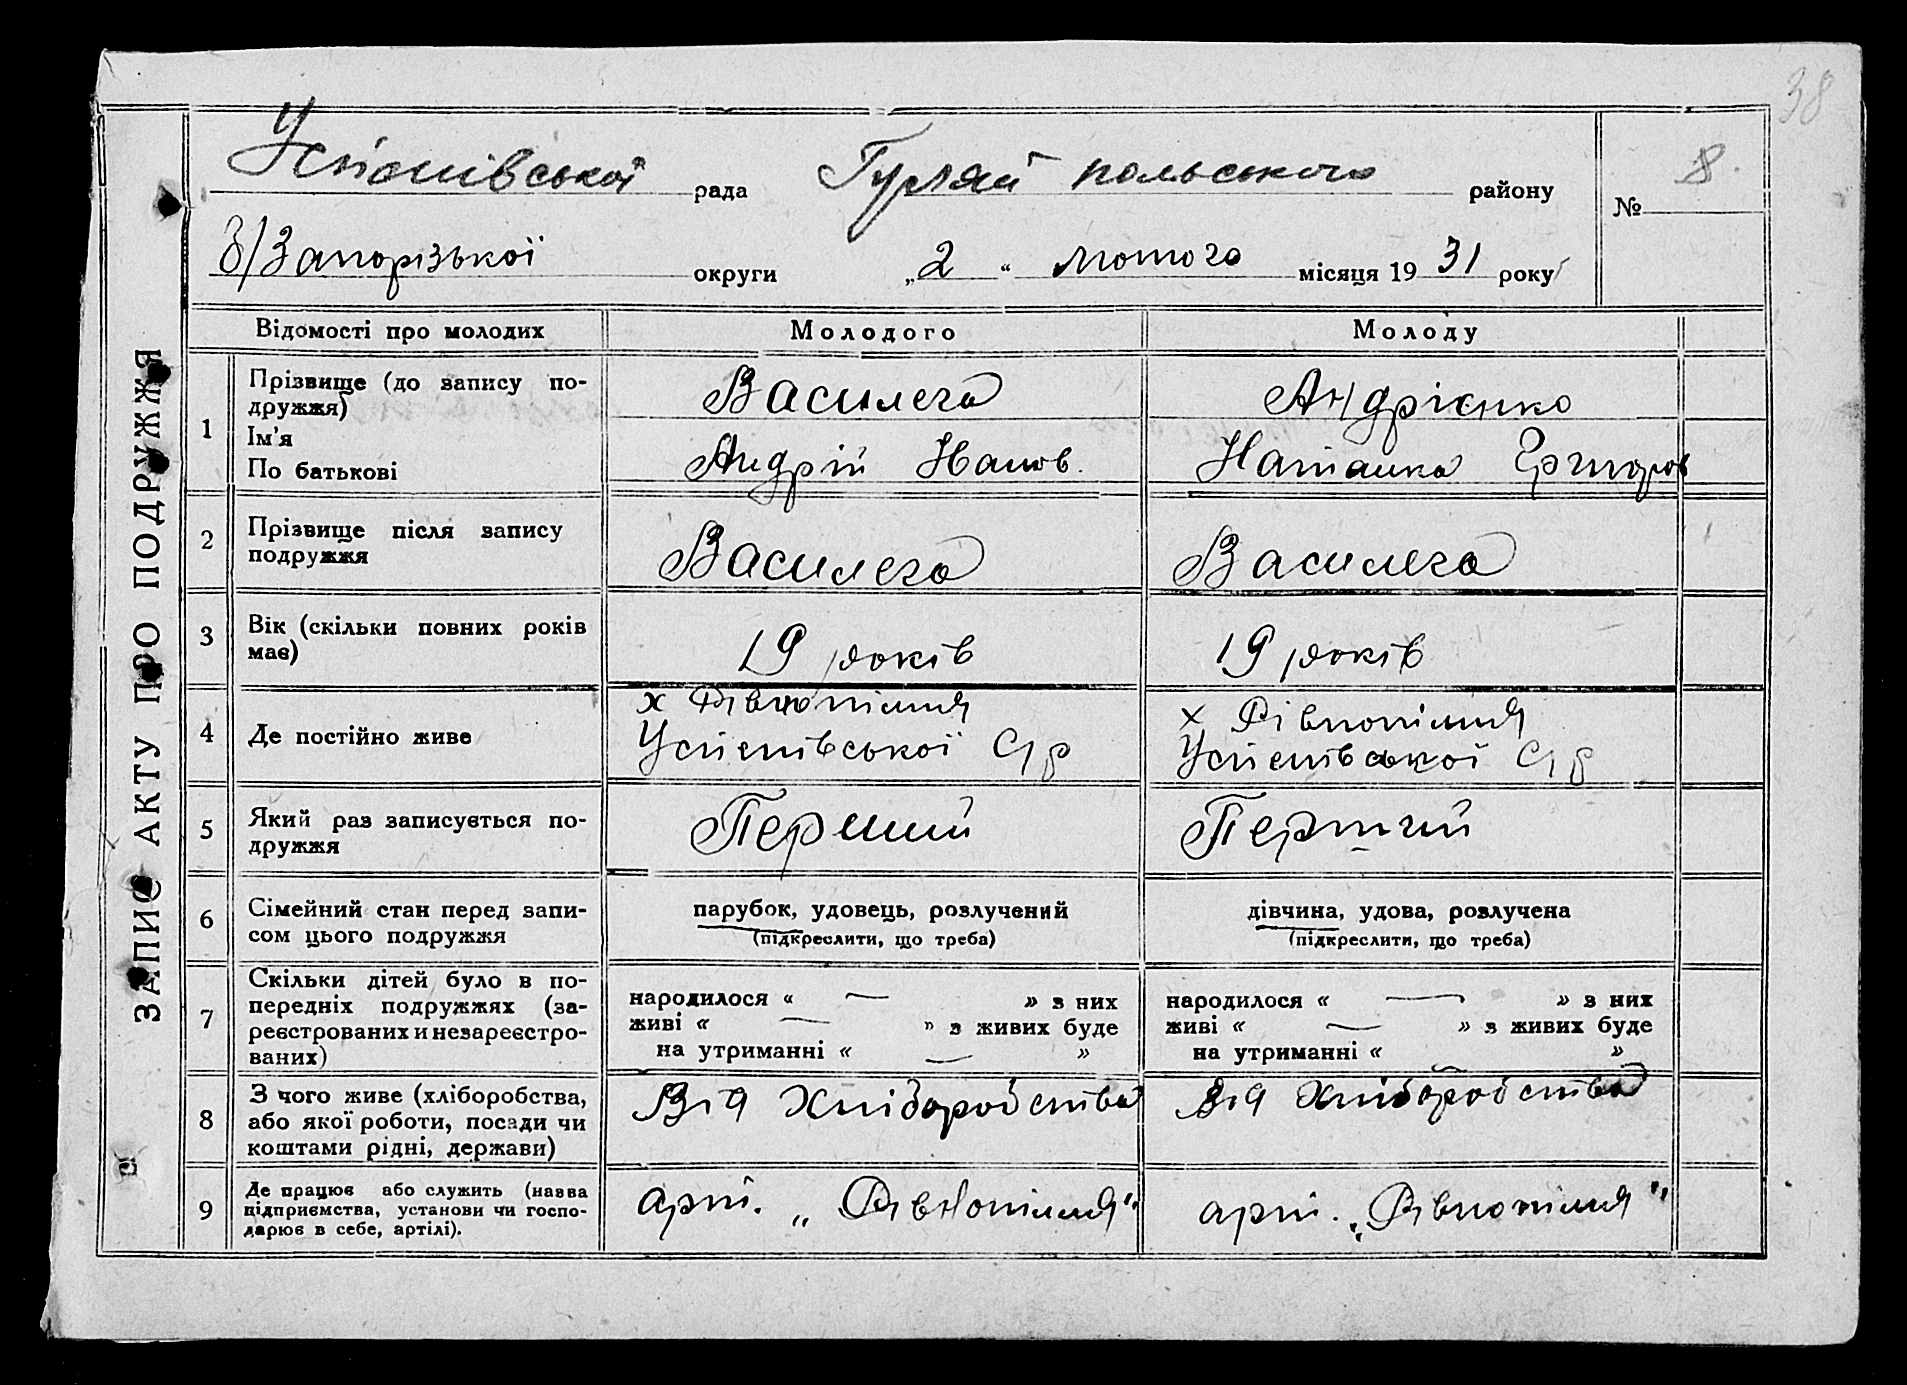 38
ЗАПИС АКТУ ПРО ПОДРУЖЖЯ
Успенівської рада Гуляй польського району
№ 8.
б/Запорізької округи „2“ лютого місяця 1931 року
Відомості про молодих Молодого Молоду
1 Прізвище (до запису по-
дружжя)
Ім'я
По батькові
Василега
Андрій Иванов.
Андрієнко
Наталка
2 Прізвище після запису
подружжя
Василега
Василега
3 Вік (скільки повних років
має)
19 років
19 років
4 Де постійно живе
х Рівнопілля
Успенівської С/р
х Рівнопілля
Успенівської С/р
5 Який раз записується по-
дружжя
Перший
Перший
6 Сімейний стан перед запи-
сом цього подружжя
парубок, удовець, розлучений
(підкреслити, що треба)
дівчина, удова, розлучена
(підкреслити, що треба)
7 Скільки дітей було в по-
передніх подружжях (за-
реєстрованих и незареєстро-
ваних)
народилося « — » з них
живі « — » з живих буде
на утриманні « — »
народилося « — » з них
живі « — » з живих буде
на утриманні « — »
8 З чого живе (хліборобства,
або якої роботи, посади чи
коштами рідні, держави)
Від Хліборобства
Від Хліборобства
9 Де працює або служить (назва
підприємства, установи чи госпо-
дарює в себе, артілі).
арт. „Рівнопілля"
арт. „Рівнопілля"